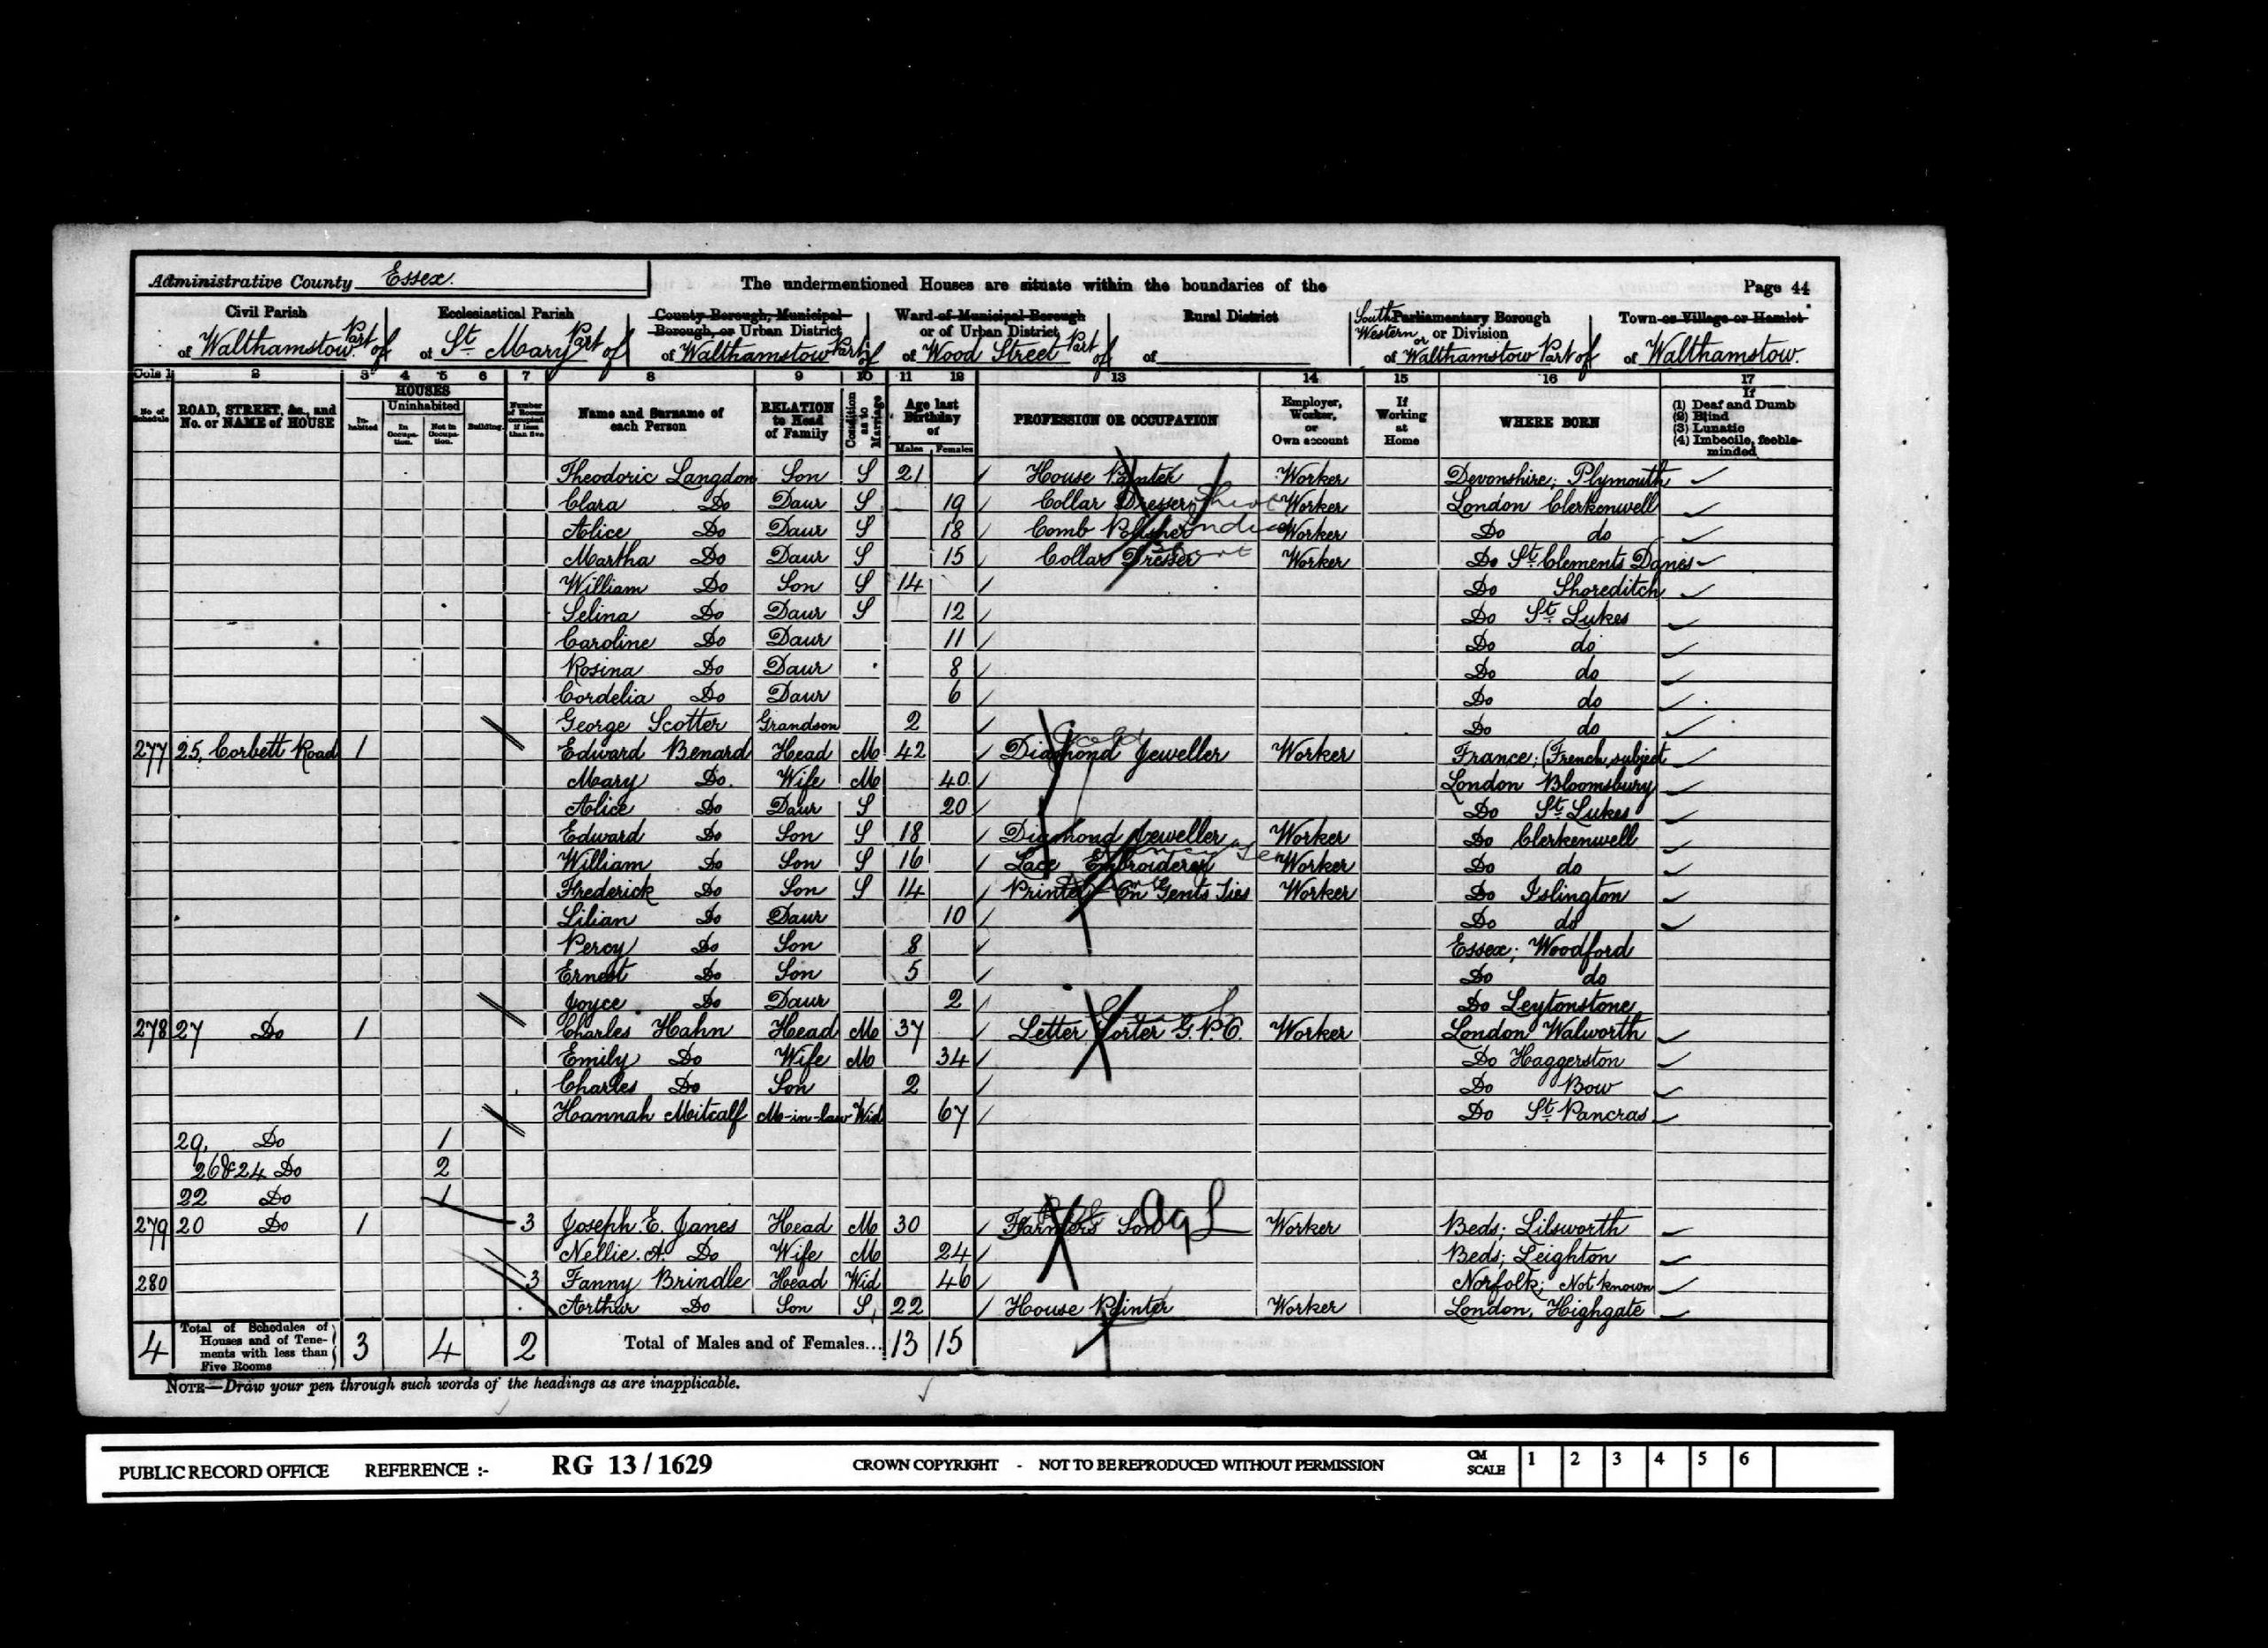 Administrative County Essex. The undermentioned Houses are situate within the boundaries of the Page 44
Civil Parish of Walthamstow Part of
Ecclesiastical Parish of St. Mary Part of
County Borough, Municipal Borough, or Urban District of Walthamstow Part of
Ward of Municipal Borough or of Urban District of Wood Street Part of
Rural District of
South Western Parliamentary Borough or Division of Walthamstow Part of
Town or Village or Hamlet of Walthamstow.
Cols 1 2 3 4 5 6 7 8 9 10 11 12 13 14 15 16 17
No. of Schedule
ROAD, STREET, &c., and No. or NAME of HOUSE
HOUSES
Inhabited
Uninhabited
In Occupation.
Not in Occupation.
Building.
Number of Rooms occupied if less than five
Name and Surname of each Person
RELATION to Head of Family
Condition as to Marriage
Age last Birthday of
Males Females
PROFESSION OR OCCUPATION
Employer, Worker, or Own account
If Working at Home
WHERE BORN
If (1) Deaf and Dumb (2) Blind (3) Lunatic (4) Imbecile, feeble-minded
Theodoric Langdon Son S 21 House Painter Worker Devonshire; Plymouth
Clara Do Daur S 19 Collar Dresser Worker London Clerkenwell
Alice Do Daur S 18 Comb Polisher Worker Do do
Martha Do Daur S 15 Collar Dresser Worker Do St. Clements Danes
William Do Son S 14 Do Shoreditch
Selina Do Daur S 12 Do St. Lukes
Caroline Do Daur 11 Do do
Rosina Do Daur 8 Do do
Cordelia Do Daur 6 Do do
George Scotter Grandson 2 Do do
277 25, Corbett Road 1 Edward Benard Head M 42 Diamond Jeweller Worker France; (French subject
Mary Do. Wife M 40 London Bloomsbury
Alice Do Daur S 20 Do St. Lukes
Edward Do Son S 18 Diamond Jeweller Worker Do Clerkenwell
William Do Son S 16 Lace Embroiderer Worker Do do
Frederick Do Son S 14 Printer On Gents Ties Worker Do Islington
Lilian Do Daur 10 Do do
Percy Do Son 8 Essex; Woodford
Ernest Do Son 5 Do do
Joyce Do Daur 2 Do Leytonstone
278 27 Do 1 Charles Hahn Head M 37 Letter Sorter G.P.O. Worker London Walworth
Emily Do Wife M 34 Do Haggerston
Charles Do Son 2 Do Bow
Hannah Mitcalf M-in-law Wid 67 Do St. Pancras
29, Do 1
26 & 24 Do 2
22 Do 1
279 20 Do 1 3 Joseph. E. Janes Head M 30 Farmers Son Ag L Worker Beds; Lilsworth
Nellie. A. Do Wife M 24 Beds; Leighton
280 3 Fanny Brindle Head Wid 46 Norfolk; Not known
Arthur Do Son S 22 House Painter Worker London, Highgate
4 Total of Schedules of Houses and of Tenements with less than Five Rooms 3 4 2 Total of Males and of Females... 13 15
NOTE—Draw your pen through such words of the headings as are inapplicable.
PUBLIC RECORD OFFICE REFERENCE :- RG 13 / 1629 CROWN COPYRIGHT - NOT TO BE REPRODUCED WITHOUT PERMISSION CM SCALE 1 2 3 4 5 6